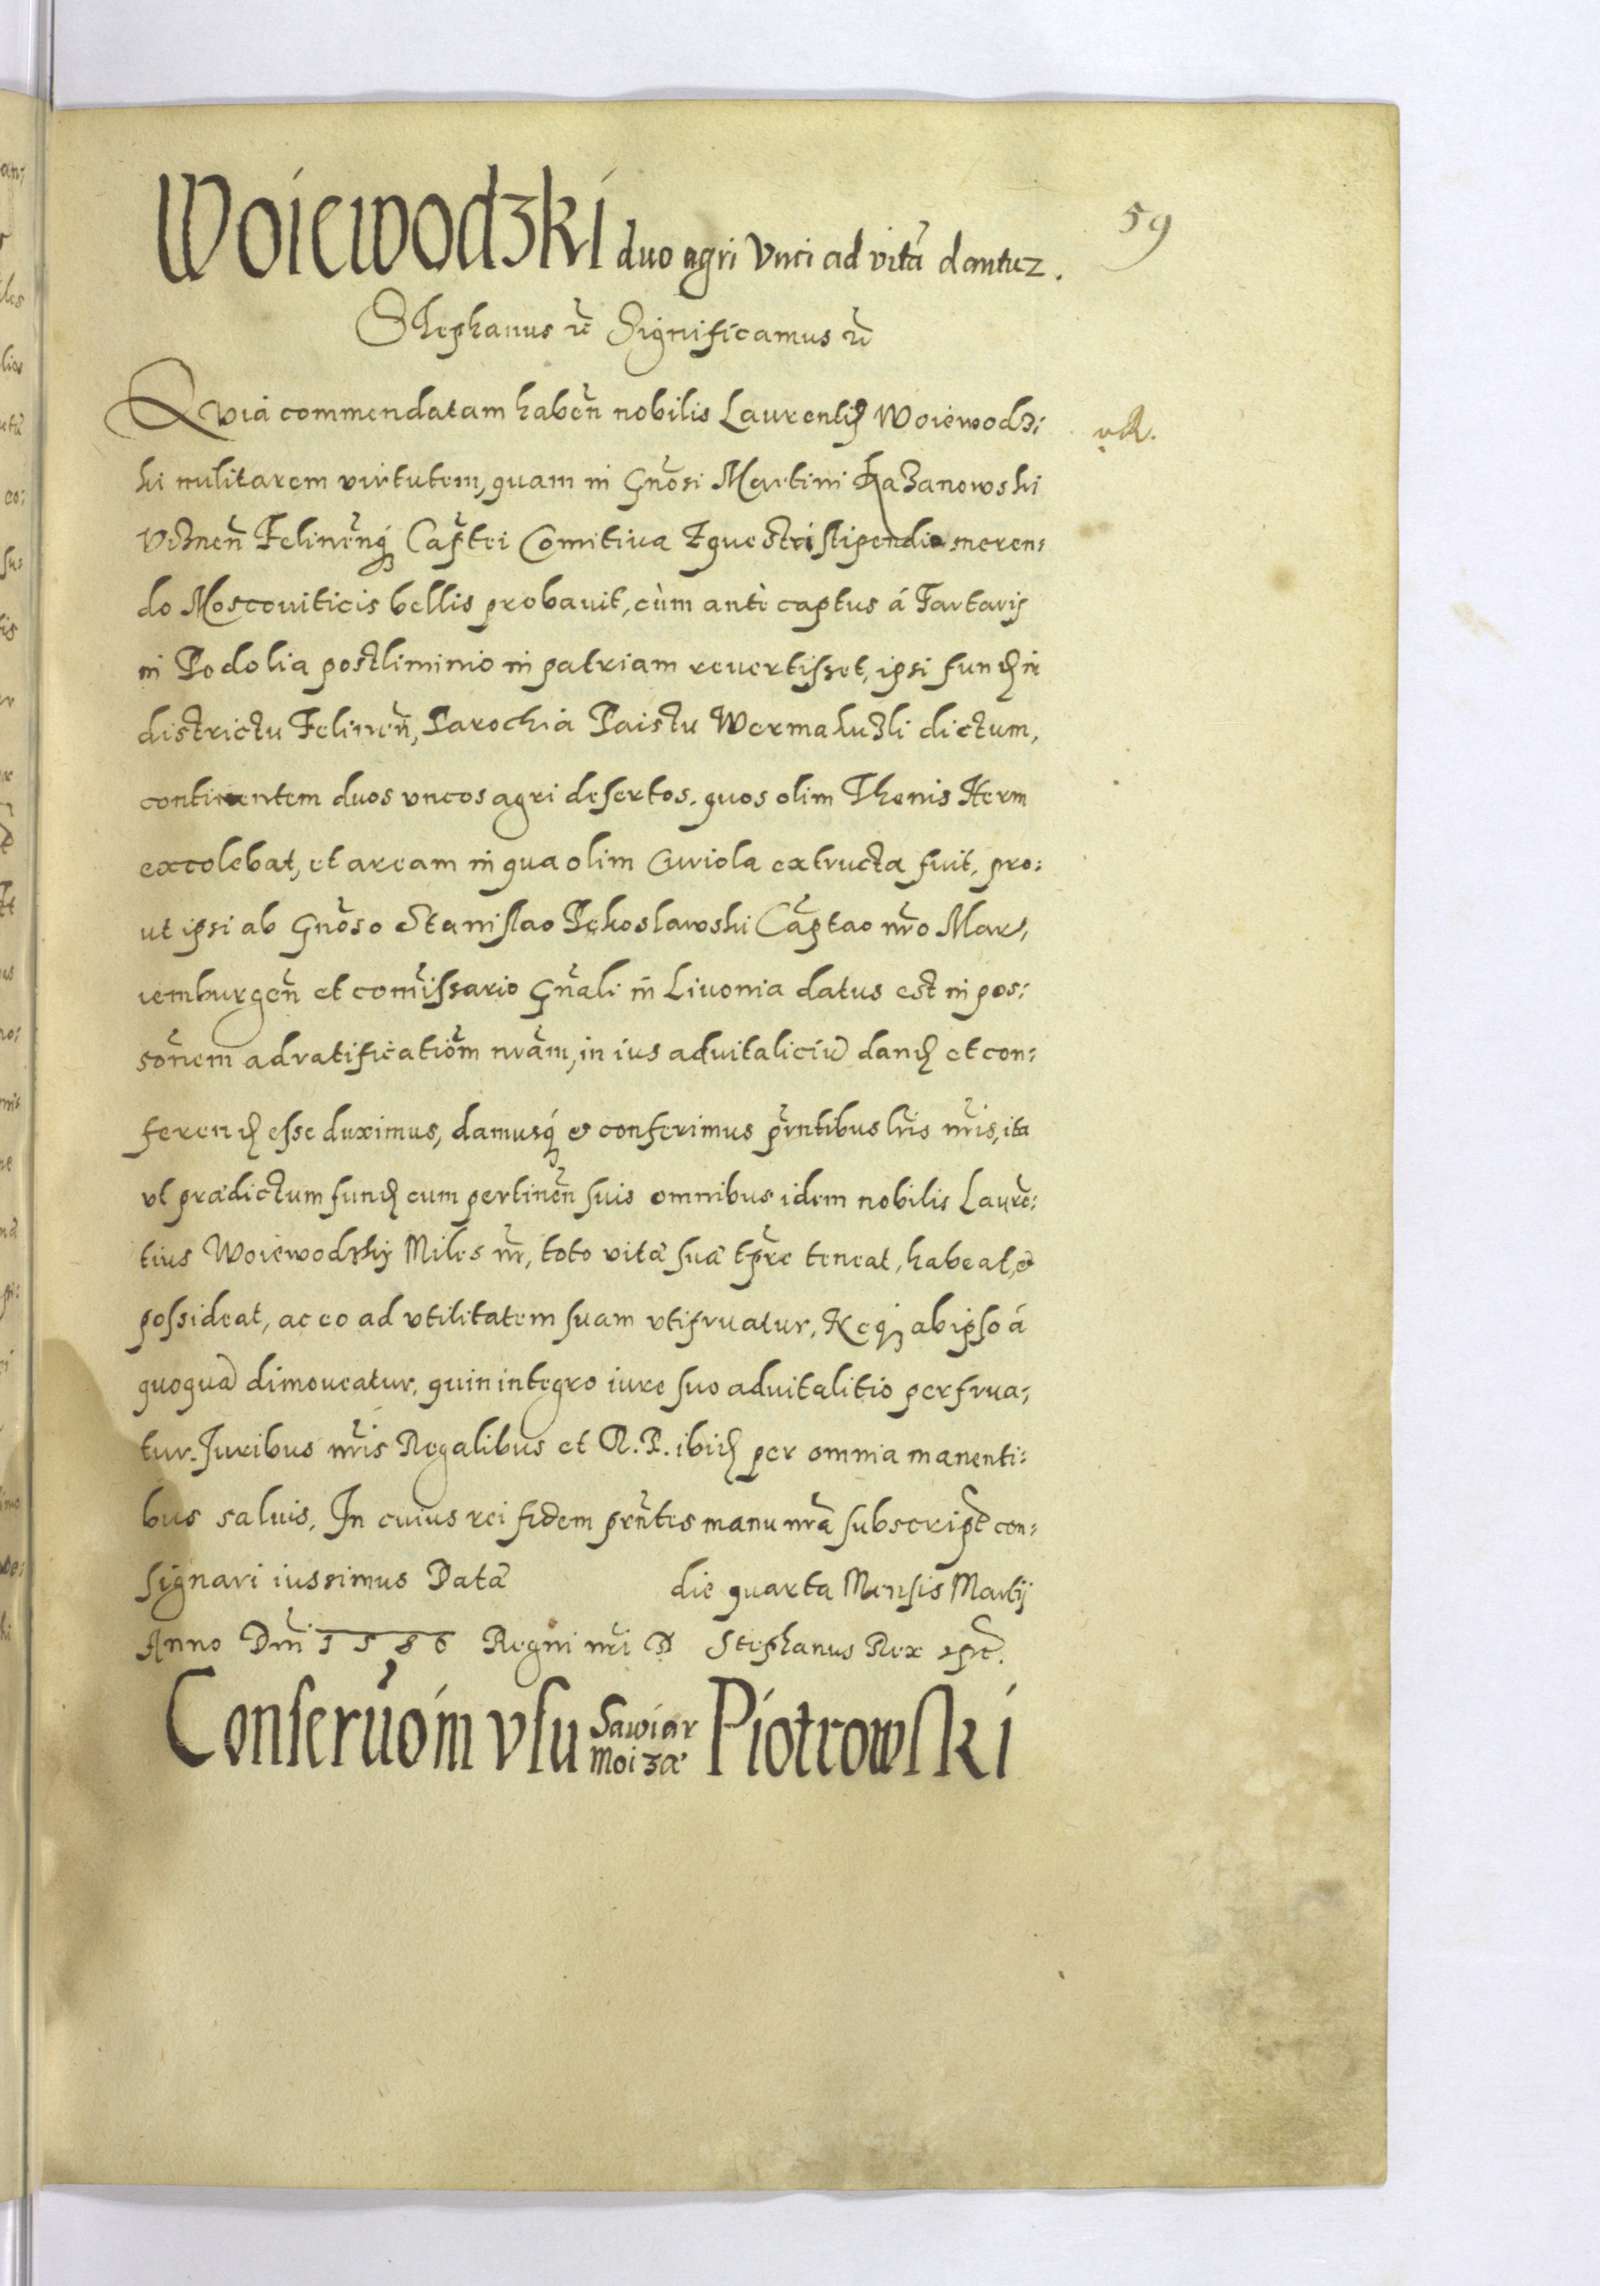 59
Woiewodzki duo agri Vnci ad vitã dantur.
Stephanus etc Significamus etc
Quia commendatam habeñ nobilis Laurentius Woiewodz:
ki militarem virtutem, quam in Gñosi Martini Kazanowski
Felineñq Captei Comitiua Equestri stipendia meren:
do Moscouiticis bellis probauit, cùm antè captus á Tartaris
in Podolia postliminio in patriam reuertisset, ipsi fund in
districtu Felineñ, Parochia Paistu Wermakuzli dictum,
continentem duos vncos agri desertos, quos olim Thenis Herm
excolebat, et aream in qua olim Curiola extructa fuit, pro:
ut ipsi ab Gñoso Stanislao Pękoslawski Captao nro Mar:
iemburgeñ et comissario Gñali in Liuonia datus est in pos:
soñem ad ratificatiõm nrãm, in ius aduitaliciũ dand et con:
ferend esse duximus, damusq & conferimus pñtibus lris nris, ita
vt prædictum fund cum pertineñ suis omnibus idem nobilis Laurẽ:
tius Woiewodzky Miles nr, toto vitæ suæ tpre teneat, habeat, &
possideat, ac eo ad vtilitatem suam vtifruatur, Neq ab ipso á
quoquã dimoueatur, quin integro iure suo aduitalitio perfrua:
tur. Juribus nris Regalibus et R. P. ibid per omnia manenti:
bus saluis, In cuius rei fidem pñtes manu nrã subscript con:
signari iussimus Datã die quarta Mensis Martij
Anno Dni 1586 Regni nri D Stephanus Rex
Conseruõim vsu Sawiar
Moizæ Piotrowski